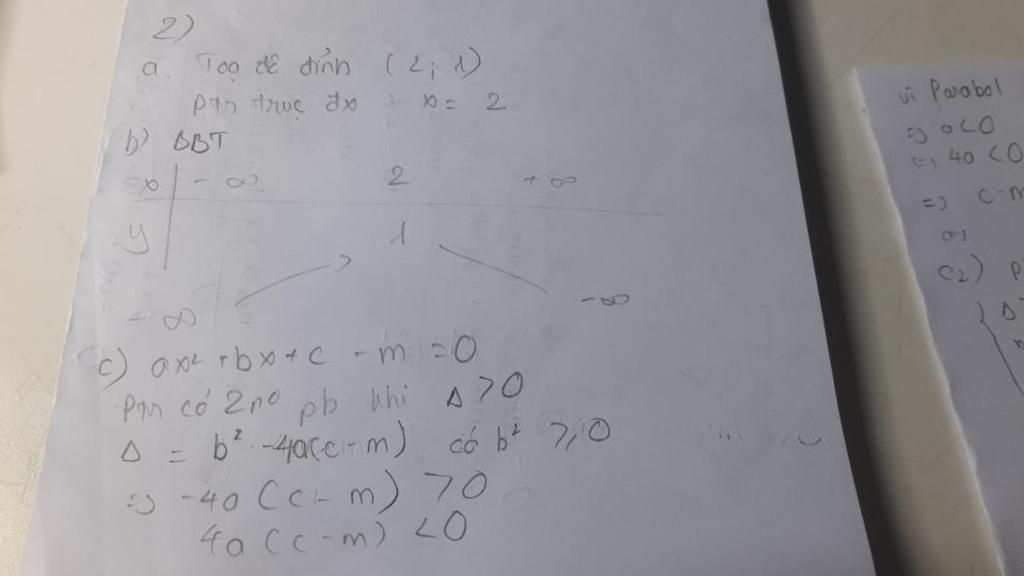 2)
a. Toạ độ đỉnh (2; 1)
ptr trục đx : x = 2
b) BBT
x -∞ 2 +∞
y 1
-∞ -∞
c) ax² + bx + c - m = 0
Ptr có 2 n⁰ pb khi Δ > 0
Δ = b² - 4a(c - m) có b² ≥ 0
=> -4a (c - m) > 0
4a (c - m) < 0
vì Parabol
=> a < 0
=> 4a < 0
=> c - m
c2) P
{ Δ